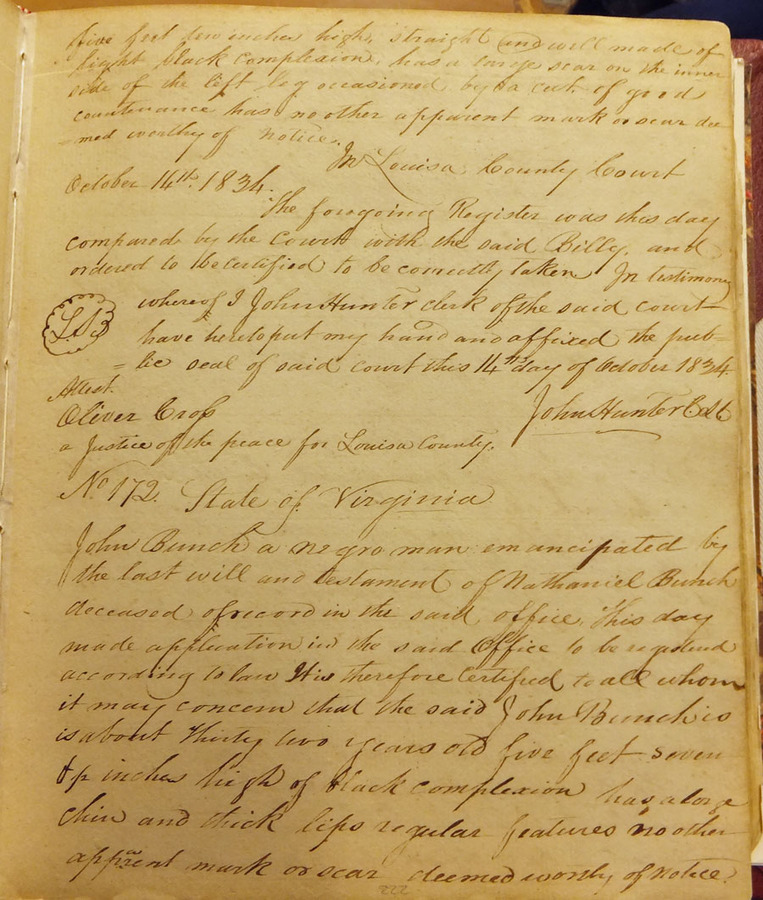 five feet two inches high, straight and will made of
light black complexion, has a large scar on the inner
side of the left leg occasioned by a cut of good
countenance has no other apparent mark or scar dee
=med worthy of notice.
In Louisa County Court
October 14th. 1834.
The foregoing Register was this day
compared by the Court with the said Billy, and
ordered to be certified to be correctly taken In testimony
whereof I John Hunter clerk of the said court
L.S.
have hereto put my hand and affixed the pub=
=lic seal of said court this 14th day of October 1834
Attest.
John Hunter
Oliver Cross
a Justice of the peace for Louisa County.
No 172. State of Virginia
John Bunch a negro man emancipated by
the last will and testament of Nathaniel Bunch
deceased of record in the said office, This day
made application in the said Office to be registered
according to law It is therefore Certified to all whom
it may concern that the said John Bunch is
is about Thirty two years old five feet seven
inches high of black complexion has a large
chin and thick lips regular features no other
apparent mark or scar deemed worthy of notice.
222